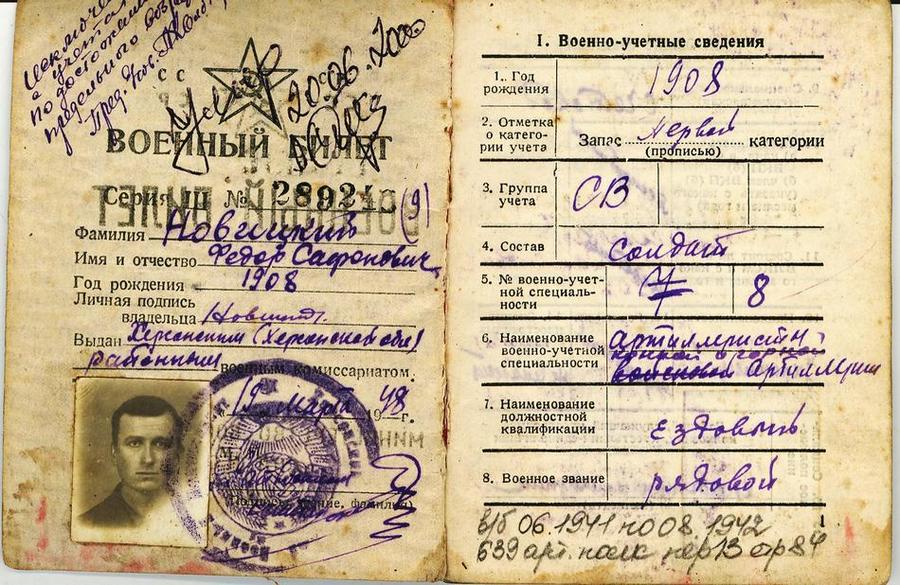 Исключён
с учёта
по достижении
предельного возр.
СС
Умер 20.06.2000
ВОЕННЫЙ БИЛЕТ
Серия ІІІ № 289210 (9)
Фамилия Новицкий
Имя и отчество Федор Сафронович
Год рождения 1908
Личная подпись
владельца
Выдан Херсонским (Херсонской обл)
районным
военным комиссариатом.
19 марта 1948 г.
I. Военно-учетные сведения
1. Год
рождения 1908
2. Отметка
о катего-
рии учета Запас первой категории
(прописью)
3. Группа
учета СВ
4. Состав солдат
5. № военно-учет-
ной специаль-
ности 7 8
6. Наименование
военно-учетной
специальности артиллеристы
Артиллерии
7. Наименование
должностной
квалификации ездовый
8. Военное звание рядовой
06.1941 по 08.1942
639 арт. полк пер 13 стр 84